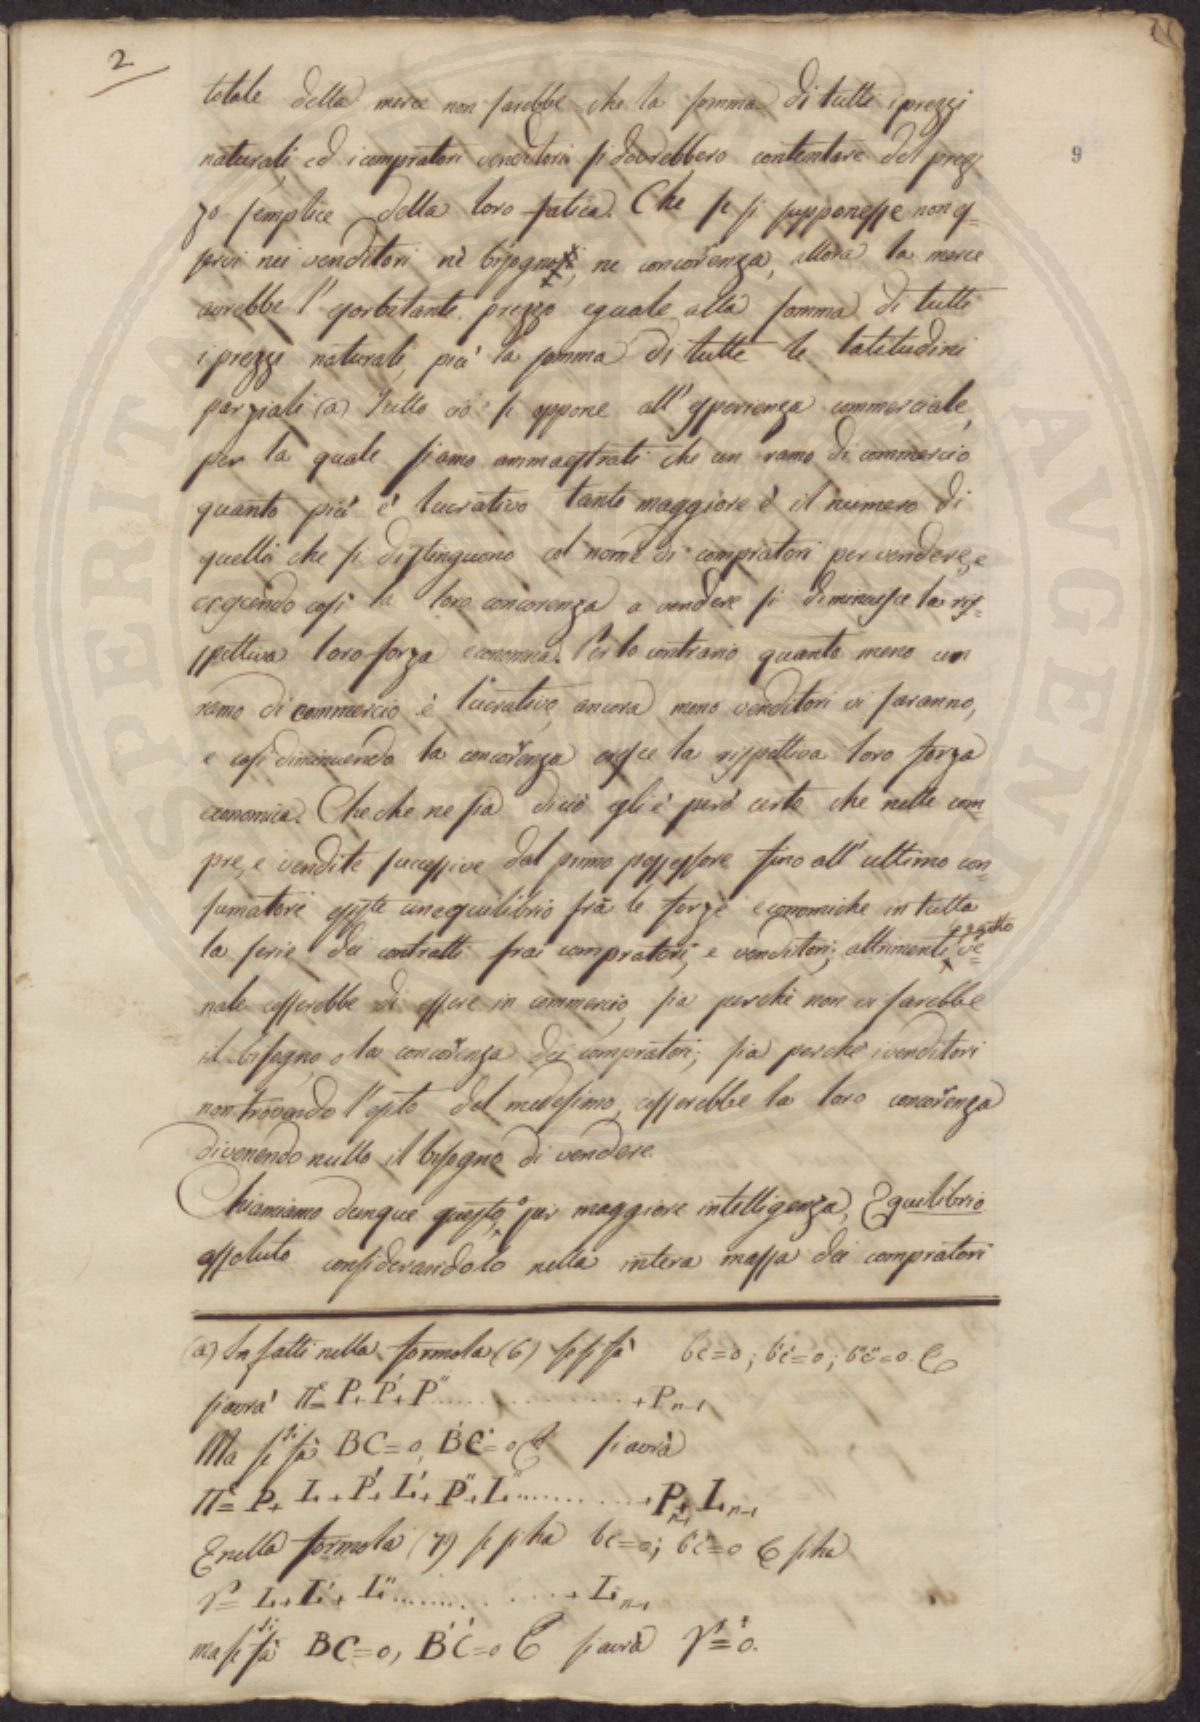 2
9
totale della merce non sarebbe che la somma di tutti i prezzi
naturali, ed i compratori venditori si dovrebbero contentare del prez-
zo semplice della loro fatica. Che se si supponesse non es-
servi nei venditori nè bisogno, ne concorenza, allora la merce
avrebbe l'esorbitante prezzo eguale alla somma di tutti
i prezzi naturali, più la somma di tutte le latitudini
parziali (a) Tutto ciò si oppone all'esperienza commerciale,
per la quale siamo ammaestrati che un ramo di commercio
quanto più è lucrativo tanto maggiore è il numero di
quelli che si distinguono col nome di compratori per vendere, e
crescendo così la loro concorenza a vendere si diminuisce la ris-
pettiva loro forza economica. Per lo contrario quanto meno un
ramo di commercio è lucrativo, ancora meno venditori vi saranno,
e così diminuendo la concorenza cresce la rispettiva loro forza
economica. Che che ne sia di ciò egli è però certo che nelle com-
pre, e vendite successive dal primo possessore fino all'ultimo con-
sumatore esiste un equilibrio frà le forze economiche in tutta
la serie dei contratti frai compratori, e venditori; altrimenti oggetto ve-
nale cesserebbe di essere in commercio, sia perchè non vi sarebbe
il bisogno, o la concorenza dei compratori; sia perchè i venditori
non trovando l'esito del medesimo, cesserebbe la loro concorenza
divenendo nullo il bisogno di vendere.
Chiamiamo dunque questo per maggiore intelligenza, Equilibrio
assoluto considerandolo nella intera massa dei compratori
(a) In fatti nella formola (6) se si fà bc=0; b'c'=0; b''c''=0. &
si avrà Π= P+P'+P''..............+P n-1
Ma se si fà BC=0, B'C'=0 & si avrà
Π= P+L+P'+L'+P''+L''...........+P n-1 + L n-1
E nella formola (7) se si ha bc=0; b'c'=0 & si ha
γ= L+L'+L''..............+L n-1
ma se si fà BC=0, B'C'=0 & si avrà γ=0.